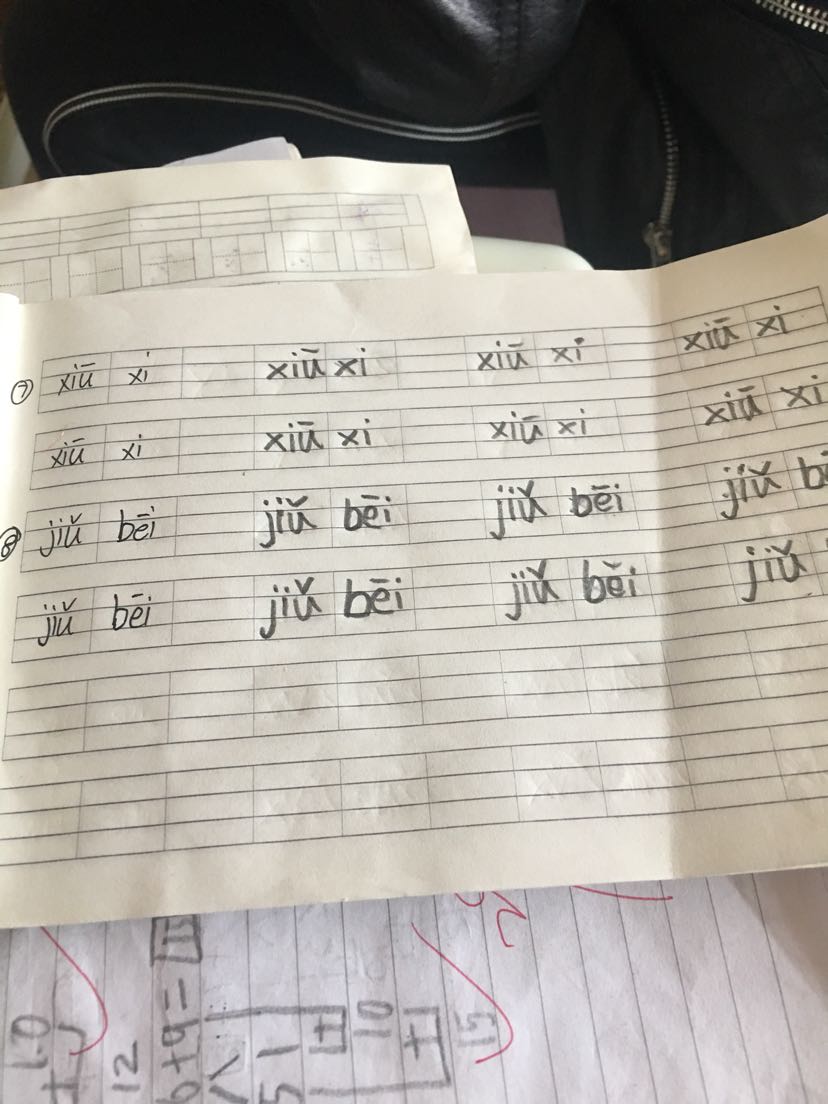 ⑦ xiū xi xiū xi xiū xi xiū xi
xiū xi xiū xi xiū xi xiū xi
⑧ jiǔ bēi jiǔ bēi jiǔ bēi jiǔ bē
jiǔ bēi jiǔ bēi jiǔ běi jiǔ
12
6+9=
15